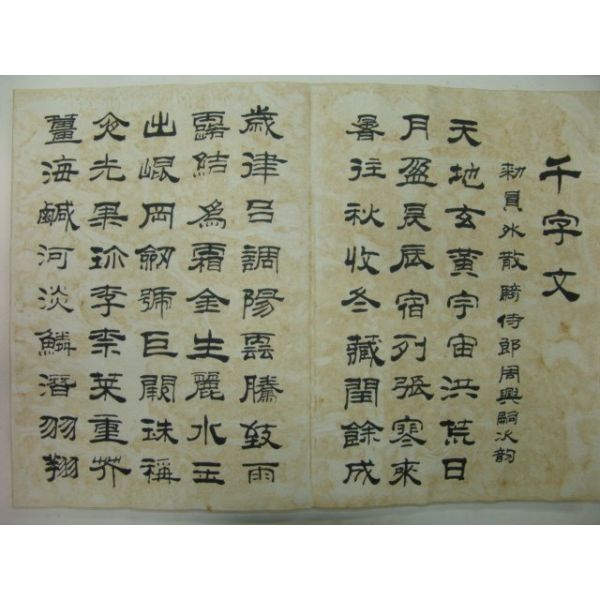 千字文
勅員外散騎侍郎周興嗣次韵
天地玄黃宇宙洪荒日
月盈昃辰宿列張寒來
暑往秋收冬藏閏餘成
歲律呂調陽雲騰致雨
露結爲霜金生麗水玉
出崐岡劒號巨闕珠稱
夜光果珍李柰菜重芥
薑海鹹河淡鱗潛羽翔